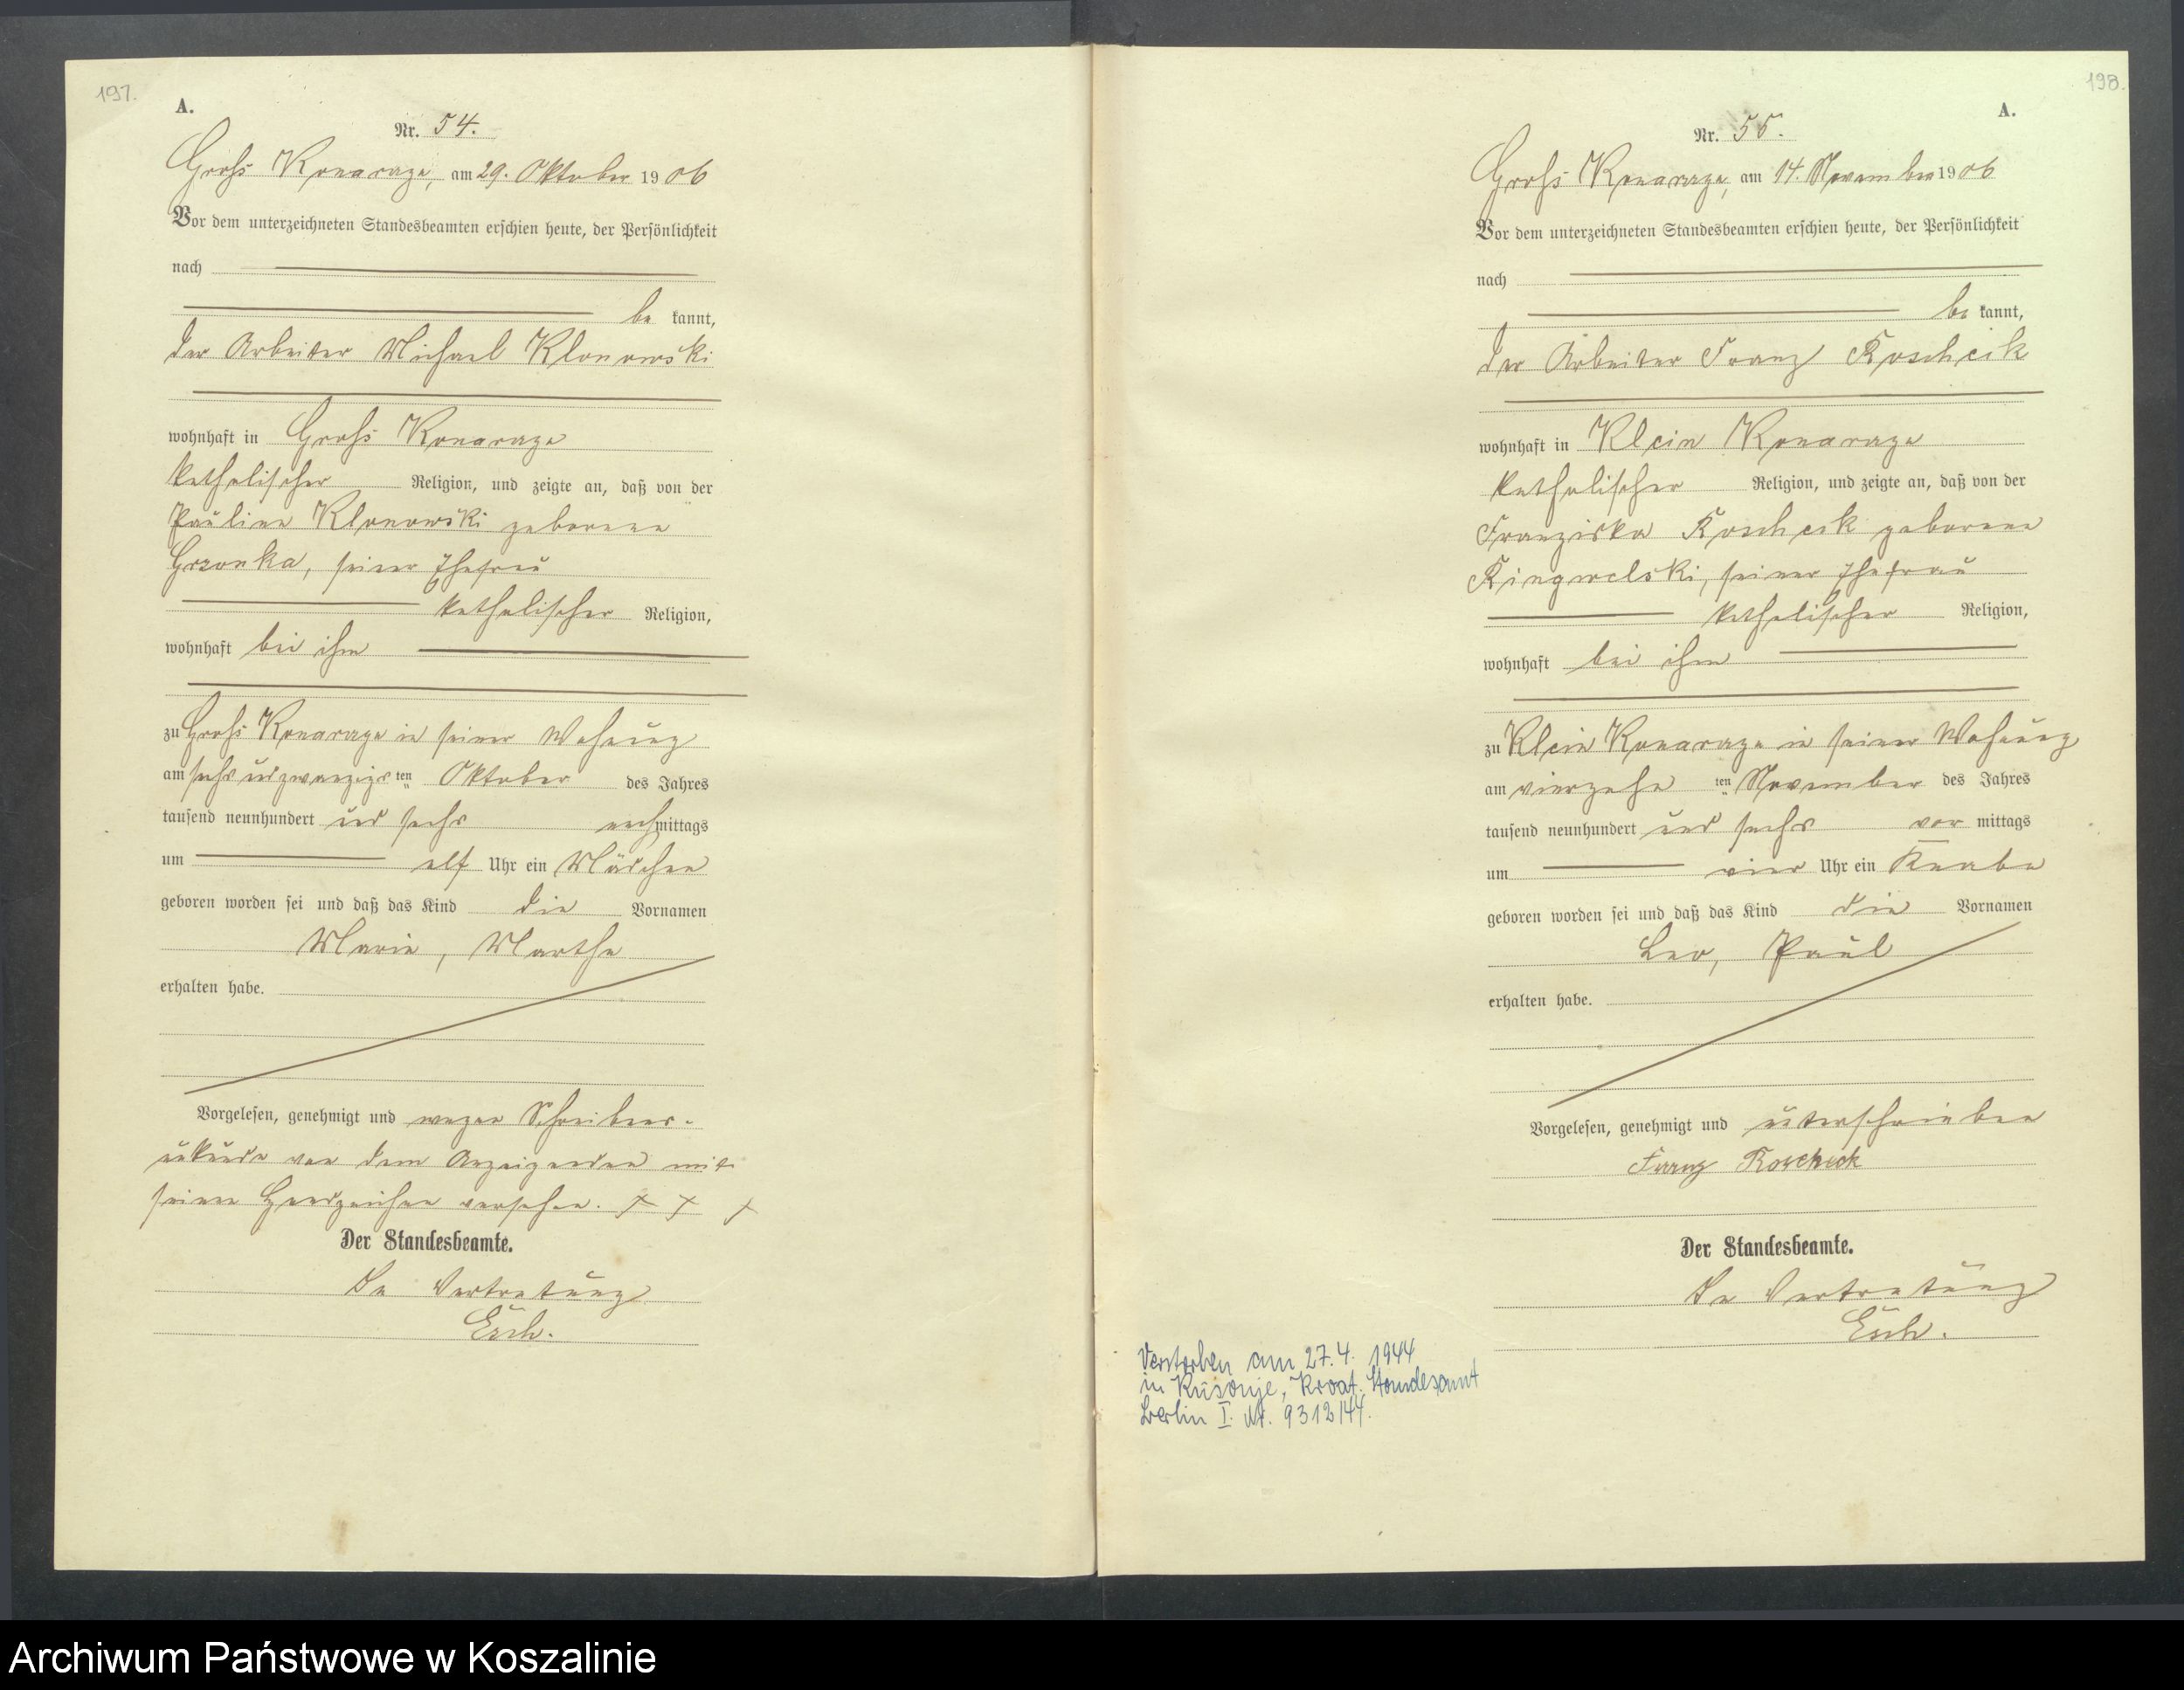 197.
A.
Nr. 54.
Groß Konarczyn, am 29. Oktober 1906
Vor dem unterzeichneten Standesbeamten erschien heute, der Persönlichkeit
nach
be kannt,
der Arbeiter Michael Klonowski
wohnhaft in Groß Konarczyn
katholischer Religion, und zeigte an, daß von der
Pauline Klonowski geborene
Grzonka, seiner Ehefrau
katholischer Religion,
wohnhaft bei ihm
zu Groß Konarczyn in seiner Wohnung
am sechsundzwanzigsten Oktober des Jahres
tausend neunhundert und sechs nachmittags
um elf Uhr ein Mädchen
geboren worden sei und daß das Kind die Vornamen
Marie, Martha
erhalten habe.
Vorgelesen, genehmigt und wegen Schreibens-
unkunde von dem Anzeigenden mit
seinem Handzeichen versehen. + + +
Der Standesbeamte.
In Vertretung
Esch.
198.
A.
Nr. 55.
Groß Konarczyn, am 14. November 1906
Vor dem unterzeichneten Standesbeamten erschien heute, der Persönlichkeit
nach
be kannt,
der Arbeiter Franz Roschcik
wohnhaft in Klein Konarczyn
katholischer Religion, und zeigte an, daß von der
Franziska Roschcik geborene
Ringwelski, seiner Ehefrau
katholischer Religion,
wohnhaft bei ihm
zu Klein Konarczyn in seiner Wohnung
am vierzehn ten November des Jahres
tausend neunhundert und sechs vor mittags
um vier Uhr ein Knabe
geboren worden sei und daß das Kind die Vornamen
Leo, Paul
erhalten habe.
Vorgelesen, genehmigt und unterschrieben
Franz Roscheck
Der Standesbeamte.
In Vertretung
Esch.
Verstorben am 27.4. 1944
in Kusonje, Kroat. Standesamt
Berlin I. Nr. 9312/44.
Archiwum Państwowe w Koszalinie